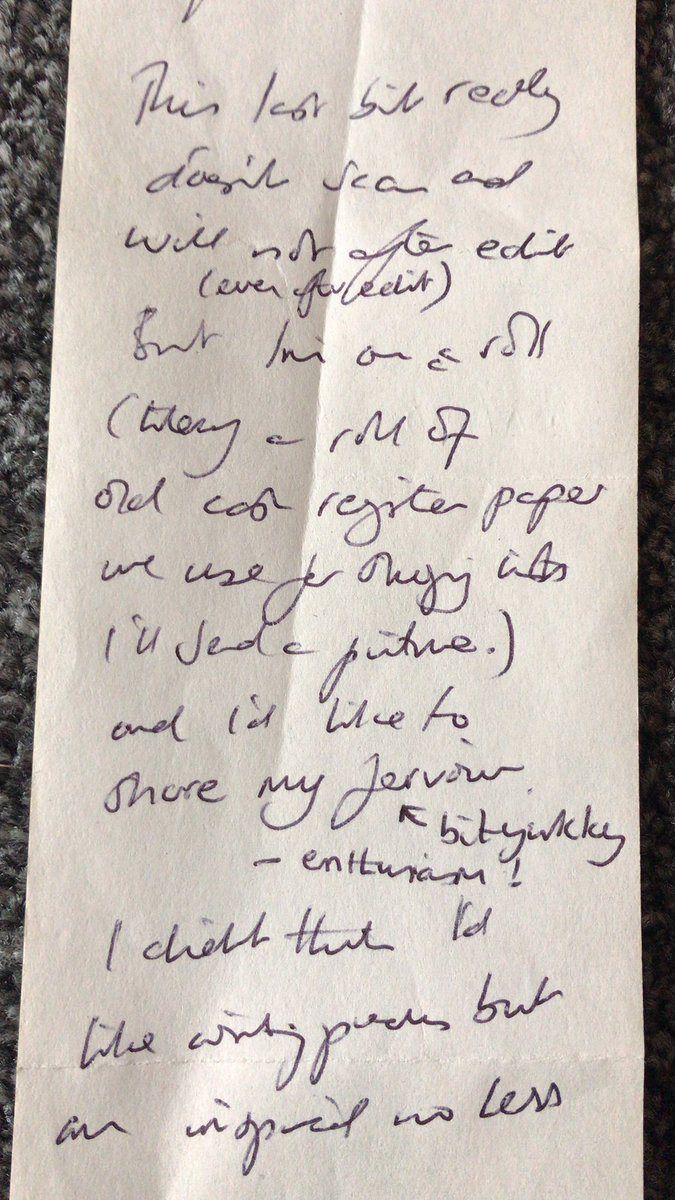 This last bit really
doesn't scan and
will not after edit
(even after edit)
But I'm on a roll
(literally a roll of
old cash register paper
we use for shopping lists
I'll send a picture.)
and I'd like to
share my fervour
↖ bit yukky
- enthusiasm!
I didn't think I'd
like writing but
am inspired no less